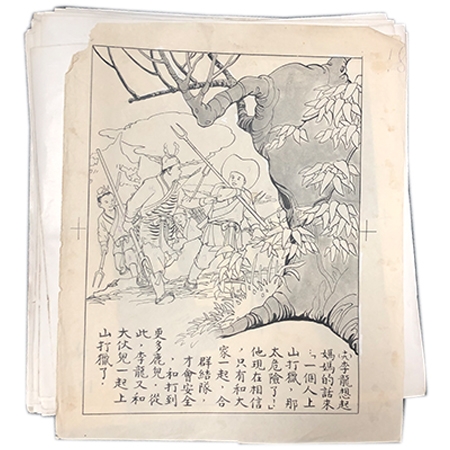 李龍想起
媽媽的話來
：「一個人上
山打獵，那
太危險了！」
他現在相信
，只有和大
家一起，合
群結隊，
才會安全
，和打到
更多鹿兒。從
此，李龍又和
大伙兒一起上
山打獵了。